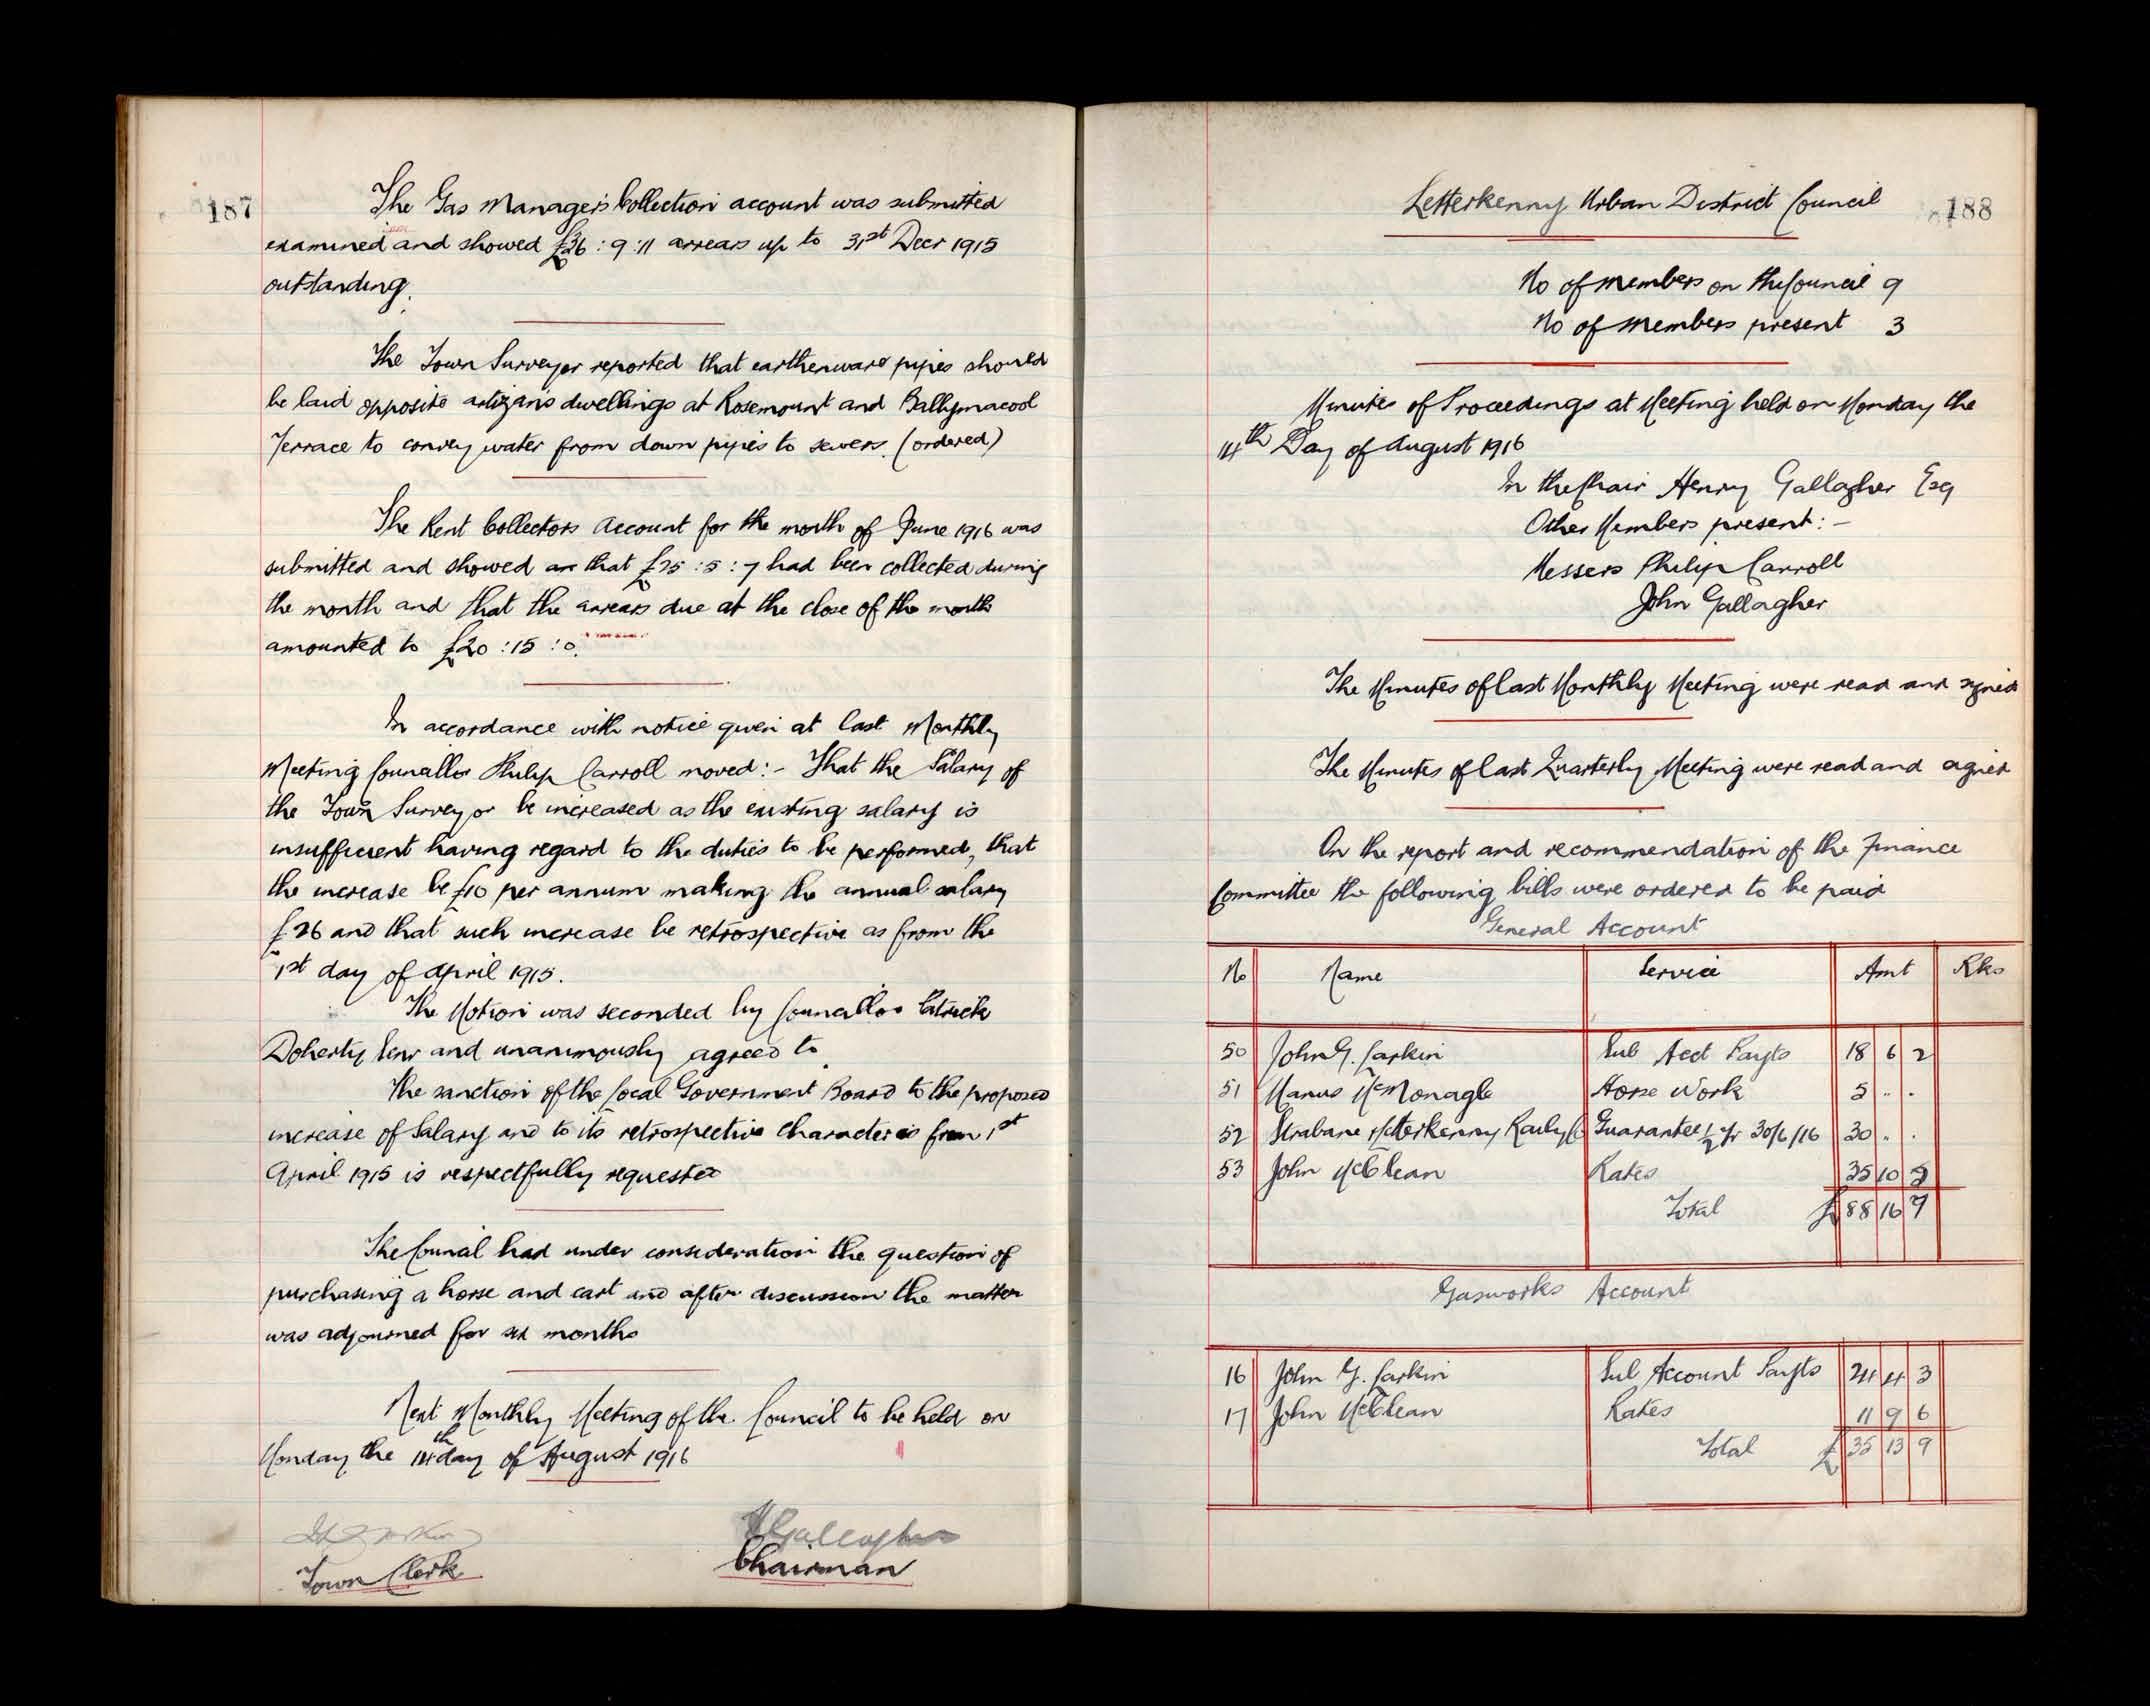 187
The Gas Manager's Collection account was submitted
examined and showed £36 : 9 : 11 arrears up to 31st Decr 1915
outstanding.
The Town Surveyor reported that earthenware pipes should
be laid opposite artizans dwellings at Rosemount and Ballymacool
Terrace to convey water from down pipes to sewers. (ordered)
The Rent Collectors account for the month of June 1916 was
submitted and showed that £25 : 5 : 7 had been collected during
the month and that the arrears due at the close of the month
amounted to £20 : 15 : 0.
In accordance with notice given at last Monthly
Meeting Councillor Philip Carroll moved :- That the Salary of
the Town Surveyor be increased as the existing salary is
insufficient having regard to the duties to be performed, that
the increase be £10 per annum making the annual salary
£26 and that such increase be retrospective as from the
1st day of April 1915.
The Motion was seconded by Councillor Patrick
Doherty Senr and unanimously agreed to.
The sanction of the Local Government Board to the proposed
increase of Salary and to its retrospective character from 1st
April 1915 is respectfully requested
The Council had under consideration the question of
purchasing a horse and cart and after discussion the matter
was adjourned for six months
Next Monthly Meeting of the Council to be held on
Monday the 14th day of August 1916
H Gallagher
Town Clerk Chairman
188
Letterkenny Urban District Council
No of members on the Council 9
No of members present 3
Minutes of Proceedings at Meeting held on Monday the
14th Day of August 1916
In the Chair Henry Gallagher Esq
Other Members present :-
Messers Philip Carroll
John Gallagher
The Minutes of last Monthly Meeting were read and signed
The Minutes of last Quarterly Meeting were read and signed
On the report and recommendation of the Finance
Committee the following bills were ordered to be paid
General Account
No Name Service Amt Rks
50 John G. Larkin Sub Acct Payts 18 6 2
51 Manus McMonagle Horse Work 5 .. .
52 Strabane & Letterkenny Railwy Co Guarantee ½ yr 30/6/16 30 .. .
53 John McClean Rates 35 10 5
Total £88 16 7
Gasworks Account
16 John G. Larkin Sub Account Payts 24 4 3
17 John McClean Rates 11 9 6
Total £ 35 13 9